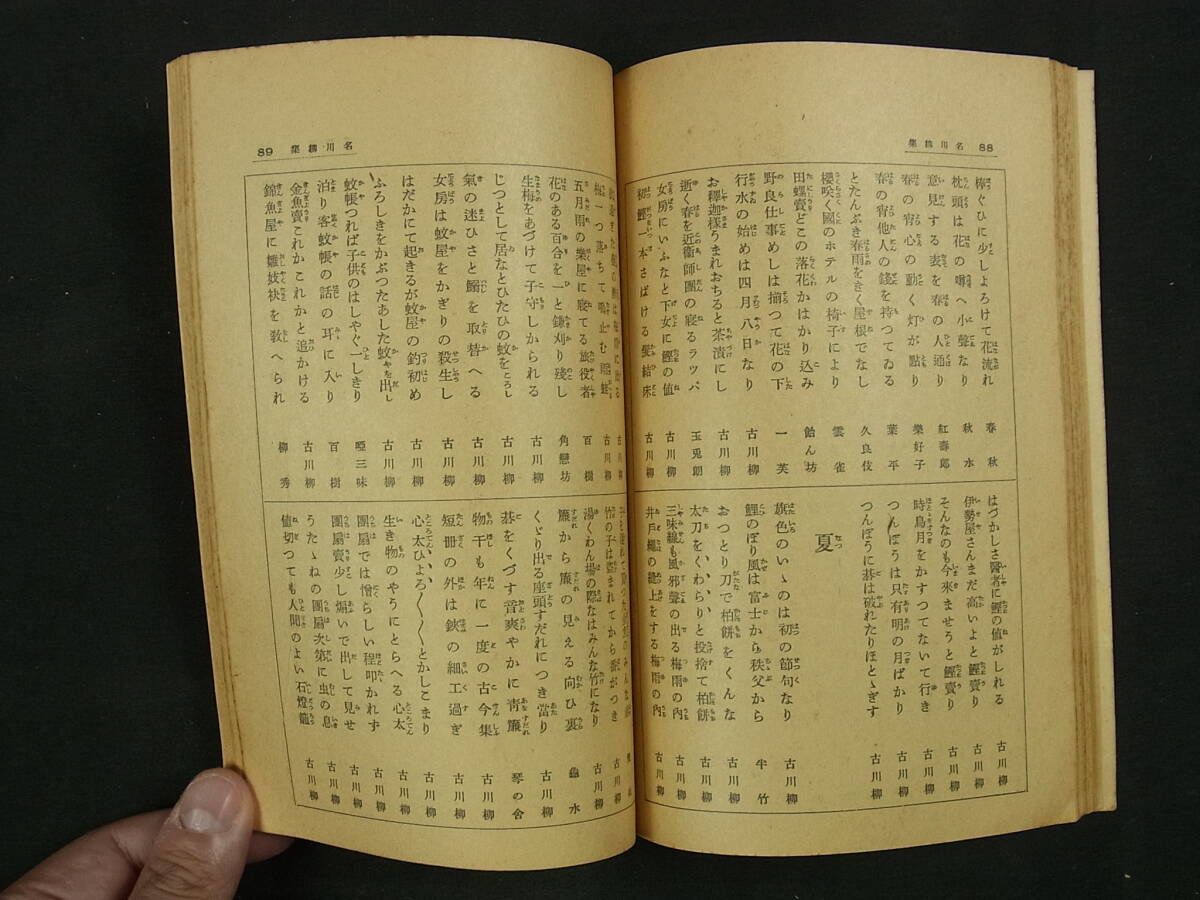 名川柳集 88
棒ぐひに少しよろけて花流れ 春秋
枕頭は花の噂へ小聲なり 秋水
意見する表を春の人通り 紅壽郎
春の宵心の動く灯が點り 樂好子
春の宵他人の錢を持つてゐる 葉平
とたんぶき春雨をきく屋根でなし 久良伎
櫻咲く國のホテルの椅子により 雲雀
田螺賣どこの落花かはかり込み 飴ん坊
野良仕事めしは揃つて花の下 一芙
行水の始めは四月八日なり 古川柳
お釋迦様うまれおちると茶漬にし
逝く春を近衞師團の寢るラッパ 玉兎朗
女房にいふなと下女に鰹の値 古川柳
初鰹一本さばける髪結床 古川柳
はづかしさ醫者に鰹の値がしれる 古川柳
伊勢屋さんまだ高いよと鰹賣り 古川柳
そんなのも今來ませうと鰹賣り 古川柳
時鳥月をかすつてないて行き 古川柳
つんぼうは只有明の月ばかり 古川柳
つんぼうに碁は破れたりほとゝぎす 古川柳
夏
旗色のいゝのは初の節句なり 古川柳
鯉のぼり風は富士から秩父から 半竹
おつとり刀で柏餅をくんな 古川柳
太刀をくわらりと投捨て柏餅 古川柳
三味線も風邪聲の出る梅雨の內 古川柳
井戶繩の縫上をする梅雨の內 古川柳
89 名川柳集
梅一つ落ちて鳴止む 古川柳
五月雨の樂屋に寢てる旅役者 百樹
花のある百合を一と鎌刈り殘し 角戀坊
生梅をあづけて子守しかられる 古川柳
じつとして居なとひたひの蚊をころし 古川柳
氣の迷ひさと髑を取替へる 古川柳
女房は蚊屋をかぎりの殺生し 古川柳
はだかにて起きるが蚊屋の釣初め 古川柳
ふろしきをかぶつたあした蚊やを出し 古川柳
蚊帳つれば子供のはしやぐ一しきり 啞三味
泊り客蚊帳の話の耳に入り 百樹
金魚賣これかこれかと追かける 古川柳
錦魚屋に雛妓袂を敎へられ 柳秀
竹の子は盜まれてから番がつき 古川柳
湯くわん場の際なはみんな竹になり 古川柳
簾から簾の見える向ひ裏 龜水
くゞり出る座頭すだれにつき當り 古川柳
碁をくづす音爽やかに靑簾 琴の舍
物干も年に一度の古今集 古川柳
短冊の外は鋏の細工過ぎ 古川柳
心太ひよろ〱〱とかしこまり 古川柳
生き物のやうにとらへる心太 古川柳
團扇では憎らしい程叩かれず 古川柳
團扇賣少し煽いで出して見せ 古川柳
うたゝねの團扇次第に虫の息 古川柳
値切つても人聞のよい石燈籠 古川柳